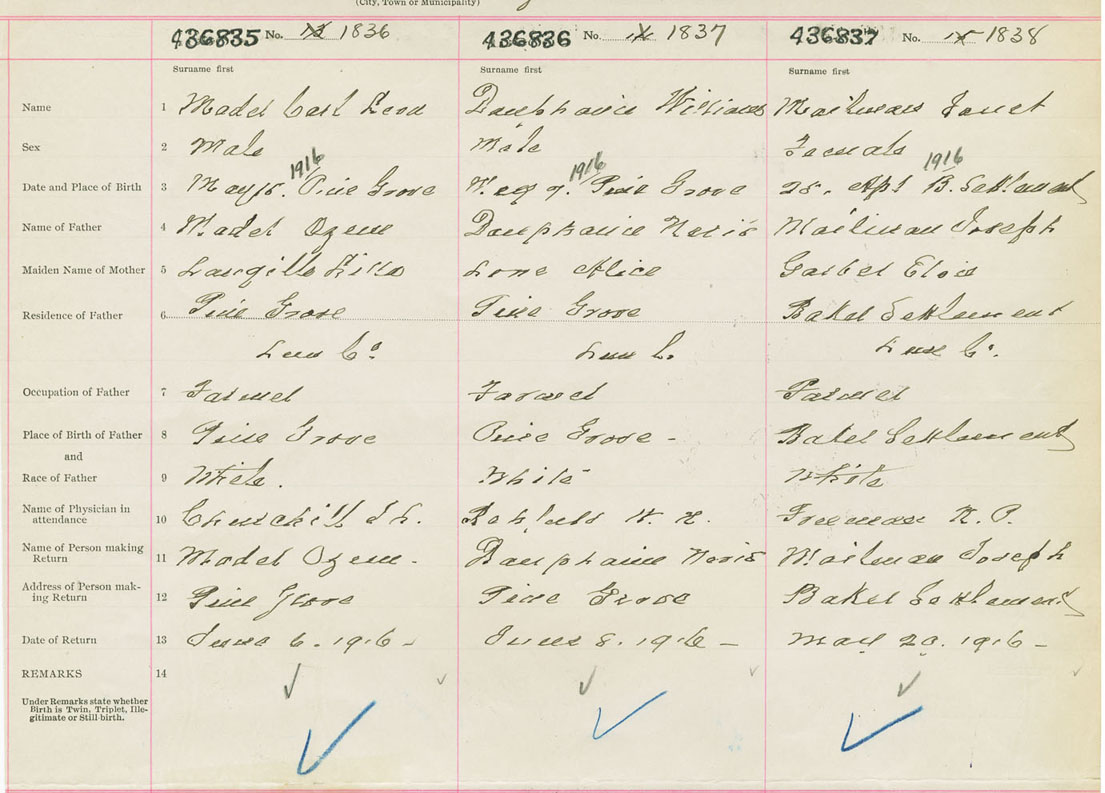 (City, Town or Municipality)
436835 No. 1836 436836 No. 1837 436837 No. 1838
Surname first Surname first Surname first
Name 1 Mader Carl Dauphinee William Mailman Janet
Sex 2 Male Male Female
1916 1916 1916
Date and Place of Birth 3 May Pine Grove May 9. Pine Grove 25. Apl B. Settlement
Name of Father 4 Mader Ozem Dauphinee Mailman Joseph
Maiden Name of Mother 5 Langille Alice
Residence of Father 6 Pine Grove Pine Grove Baker Settlement
Lun Co. Lun C. Lun C.
Occupation of Father 7 Farmer Farmer Farmer
Place of Birth of Father 8 Pine Grove Pine Grove - Baker Settlement
and
Race of Father 9 White. White White
Name of Physician in
attendance 10 Churchill Freeman
Name of Person making
Return 11 Mader Ozem - Dauphinee Mailman Joseph
Address of Person mak-
ing Return 12 Pine Grove Pine Grove Baker Settlement
Date of Return 13 June 6. 1916 - June 8. 1916 - May 20. 1916 -
REMARKS 14
Under Remarks state whether
Birth is Twin, Triplet, Ille-
gitimate or Still-birth.